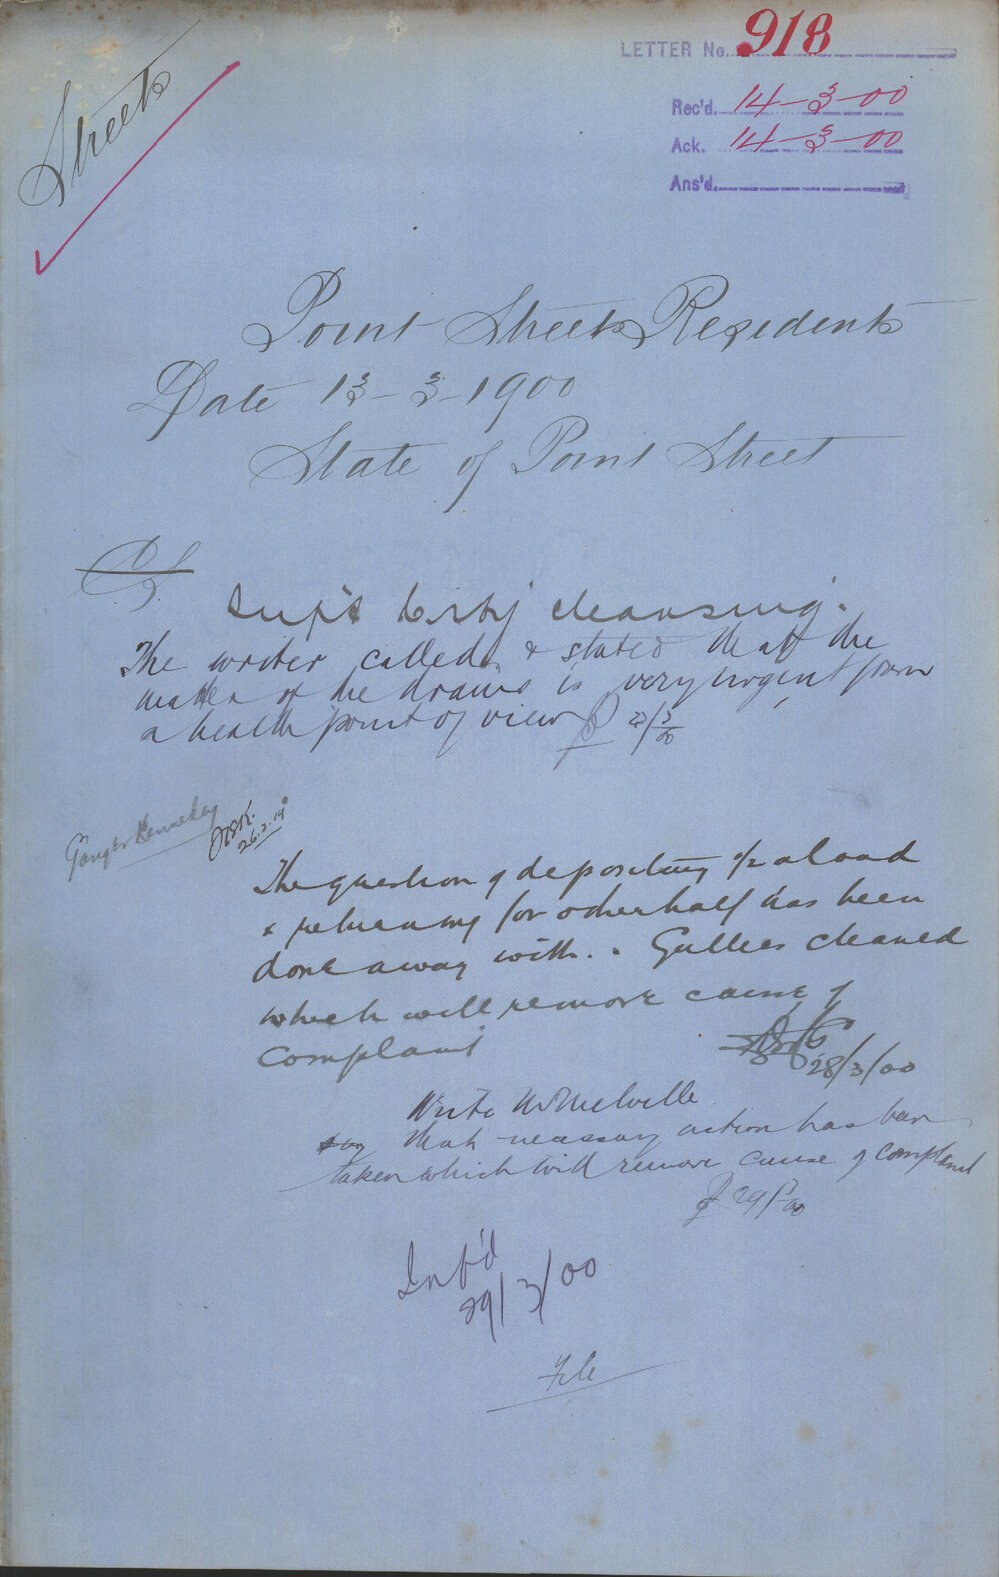 Streets
LETTER No. 918
Rec'd. 14-3-00
Ack. 14-3-00
Ans'd.
Point Street Residents
Date 13-3-1900
State of Point Street
Supt City cleansing.
The writer called & stated that the
matter of the drains is very urgent from
a health point of view
Ganger Kennedy
The question of depositing 1/2 a load
& returning for other half has been
done away with. Gullies cleaned
which will remove cause of
complaint
28/3/00
Write Mr Melville
say that necessary action has been
taken which will remove cause of complaint
29/3/00
Inf'd
29/3/00
File